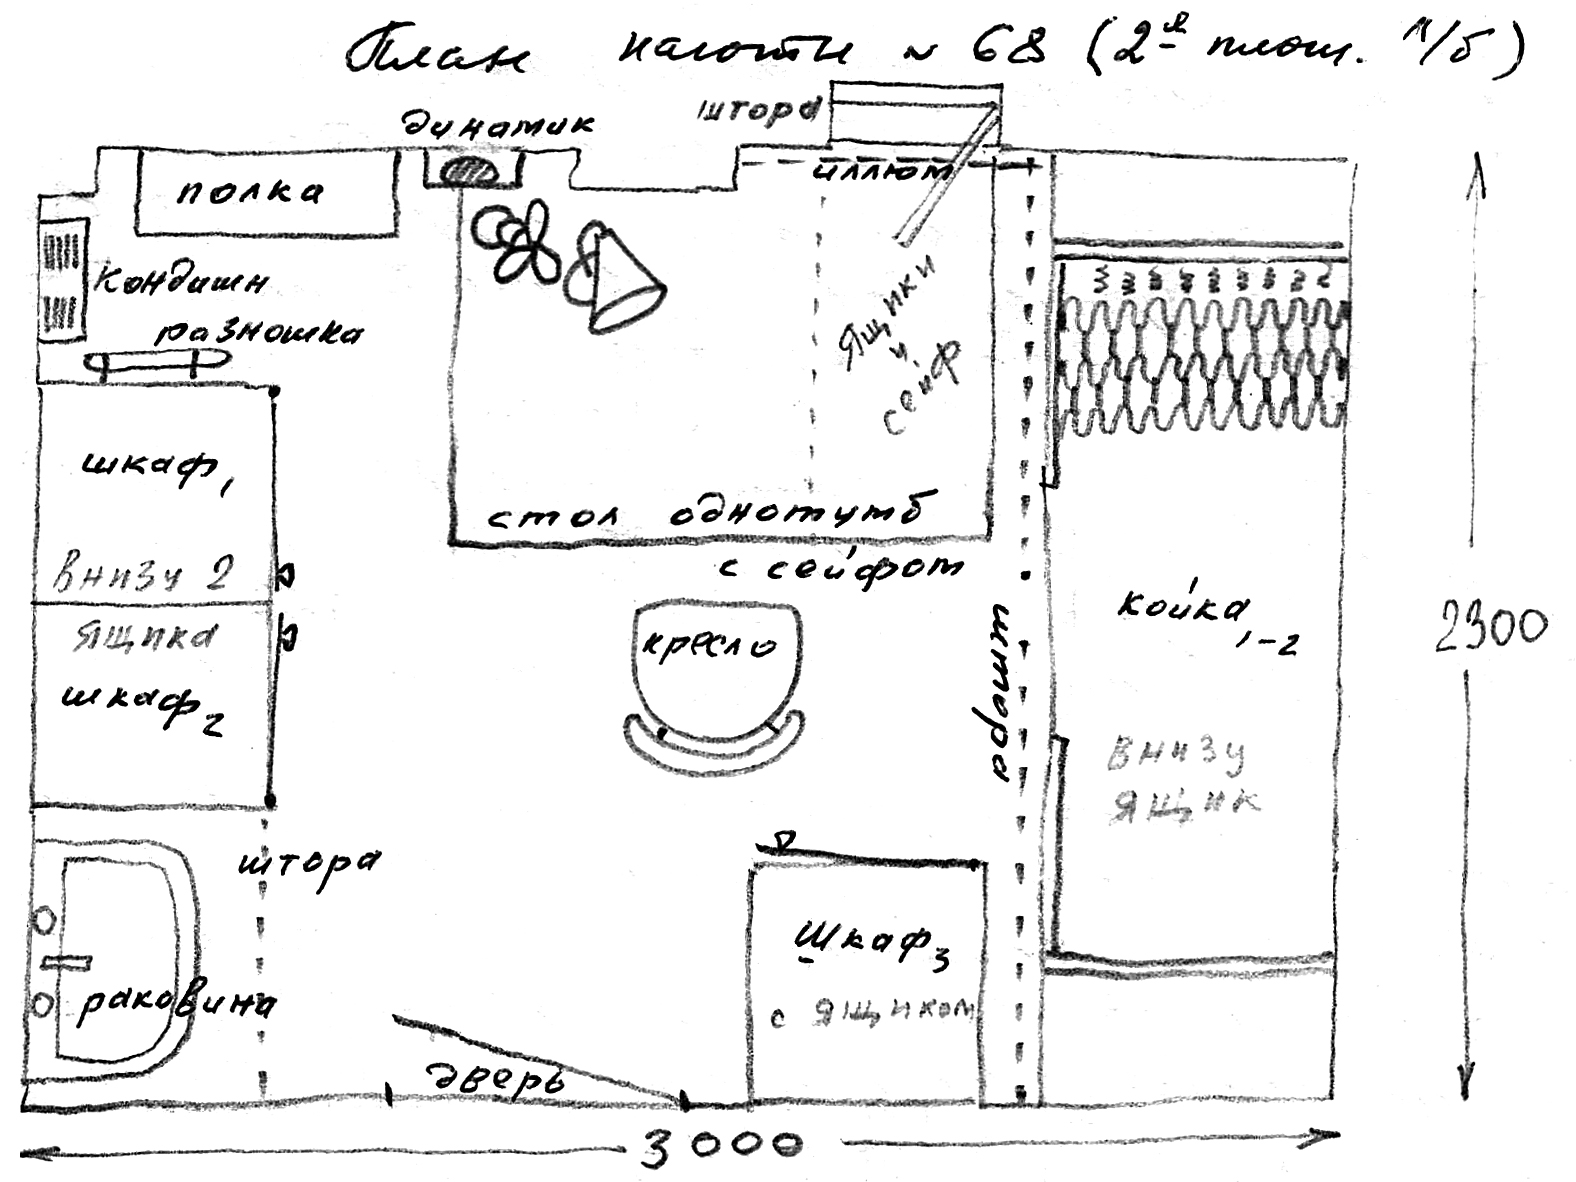 План каюты № 68 (2-я площ. л/б)
динамик
штора
полка
иллюм
кондишн
разножка
Ящики
и
сейф
шкаф 1
стол однотумб
с сейфом
внизу 2
ящика
шкаф 2
кресло
штора
койка 1-2
2300
внизу
ящик
штора
Шкаф 3
с ящиком
раковина
дверь
3000